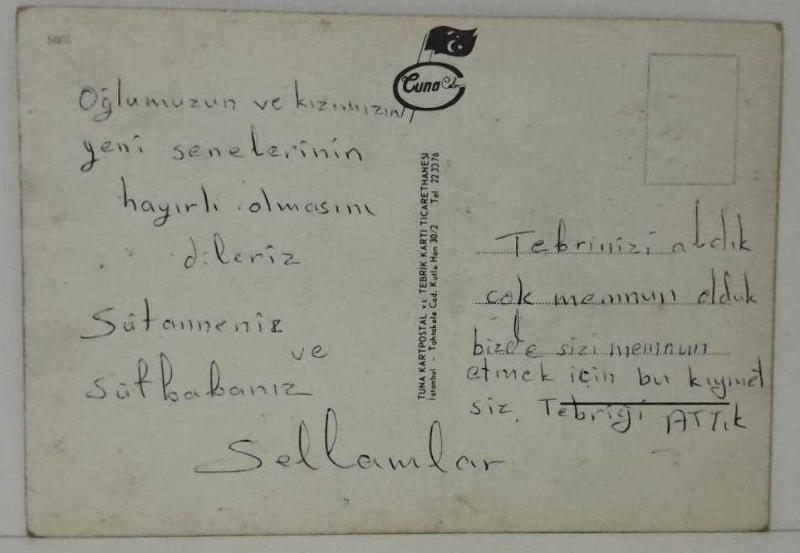 5001
Tuna
Oğlumuzun ve kızımızın
yeni senelerinin
hayırlı olmasını
dileriz
Sütanneniz
ve
Sütbabanız
Sellamlar
TUNA KARTPOSTAL ve TEBRİK KARTI TİCARETHANESİ
İstanbul - Tahtakale Cad. Kutlu Han 30/2 Tel 223376
Tebrinizi aldık
çok memnun olduk
bizde sizi memnun
etmek için bu kıymet
siz Tebriği ATTık